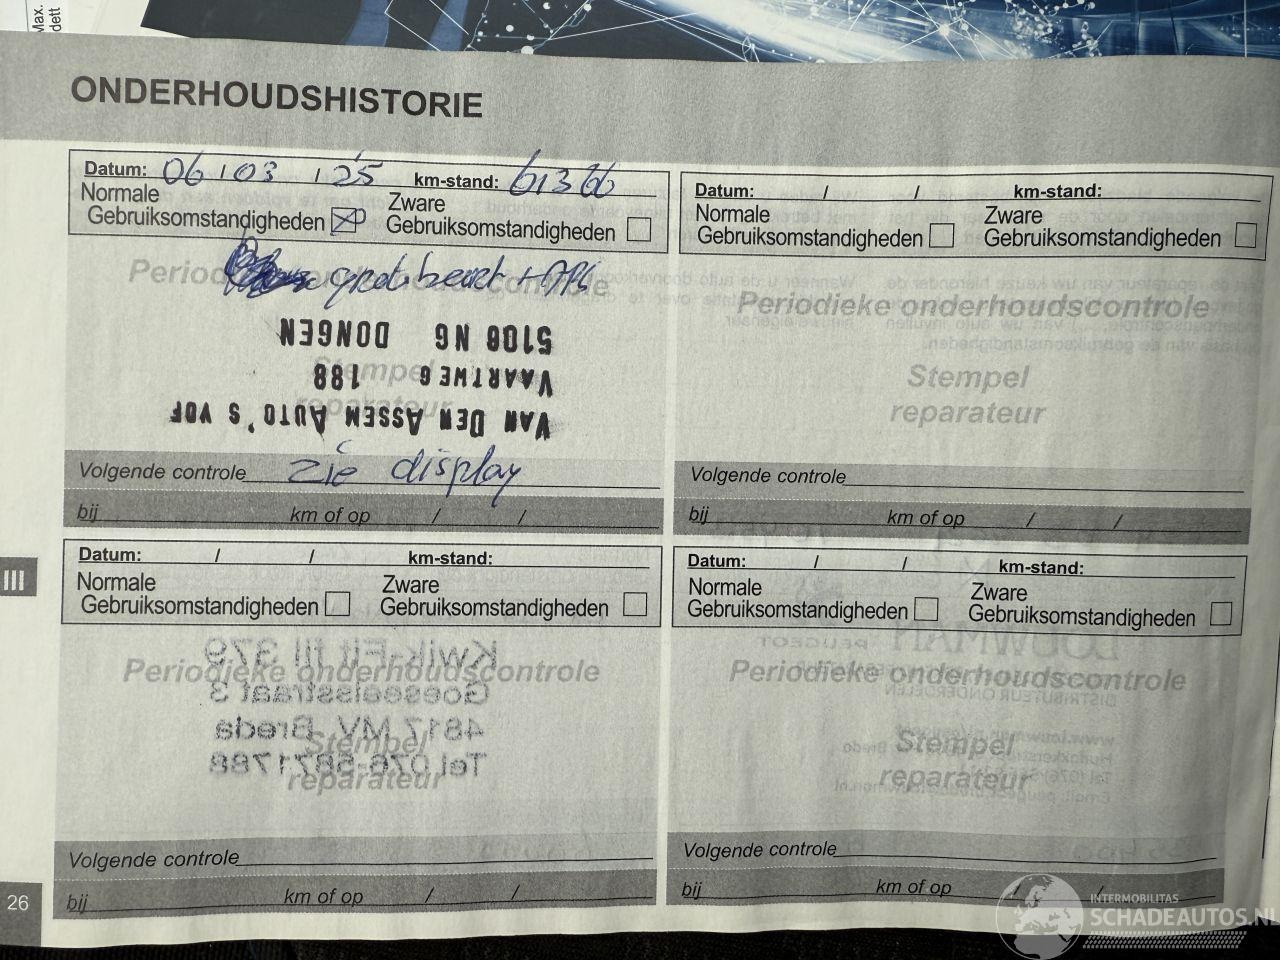 Max.
dett
ONDERHOUDSHISTORIE
Datum: 06 / 03 / 25 km-stand: 61366
Normale Gebruiksomstandigheden
Zware Gebruiksomstandigheden
Periodieke onderhoudscontrole
grote beurt + APK
Stempel
reparateur
VAN DEN ASSEM AUTO'S VOF
VAARTWEG 188
5106 NG DONGEN
Volgende controle zie display
bij km of op / /
Datum: / / km-stand:
Normale Gebruiksomstandigheden
Zware Gebruiksomstandigheden
Periodieke onderhoudscontrole
Stempel
reparateur
Volgende controle
bij km of op / /
III
Datum: / / km-stand:
Normale Gebruiksomstandigheden
Zware Gebruiksomstandigheden
Periodieke onderhoudscontrole
Kwik-Fit fil 379
Goeseelsstraat 3
4817 MV Breda
Tel.076-5871788
Stempel
reparateur
Volgende controle
bij km of op / /
Datum: / / km-stand:
Normale Gebruiksomstandigheden
Zware Gebruiksomstandigheden
LOUWMAN
PEUGEOT
Periodieke onderhoudscontrole
Stempel
reparateur
Volgende controle
bij km of op / /
26
INTERMOBILITAS
SCHADEAUTOS.NL